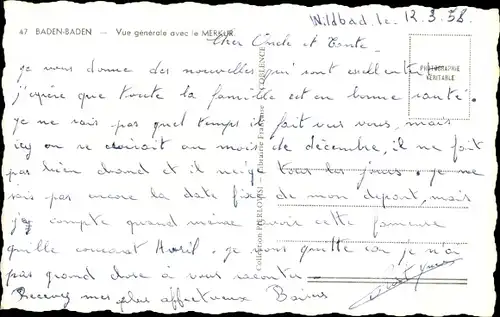 Wildbad, le 12.3.58
47 BADEN-BADEN — Vue générale avec le MERKUR
Cher Oncle et Tante.
PHOTOGRAPHIE
VÉRITABLE
je vous donne des nouvelles qui sont excellentes
j'espère que toute la famille est en bonne santé.
je ne sais pas quel temps il fait vers vous, mais
icy on se croirait au mois de décembre, il ne fait
pas bien chaud et il neige tous les jours. je ne
sais pas encore la date fixe de mon depart, mais
j'ay compte quand même avoir cette fameuse
quille courant Avril. je vous quitte car je n'ai
pas grand chose à vous raconter.
Recevez mes plus affectueux Baisers
Collection PIERLOVISI — Librairie Française — COBLENCE